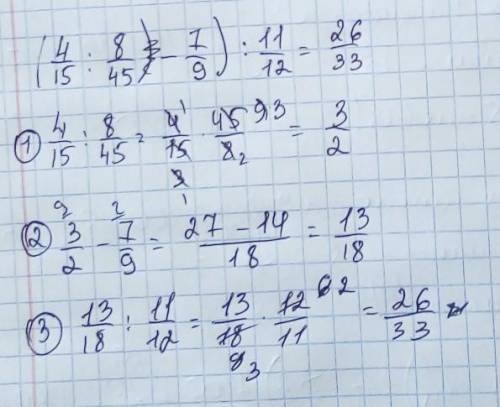 (4/15 : 8/45 - 7/9) : 11/12 = 26/33
① 4/15 : 8/45 = 4/15 · 45/8 = 3/2
② 3/2 - 7/9 = (27 - 14)/18 = 13/18
③ 13/18 : 11/12 = 13/18 · 12/11 = 26/33